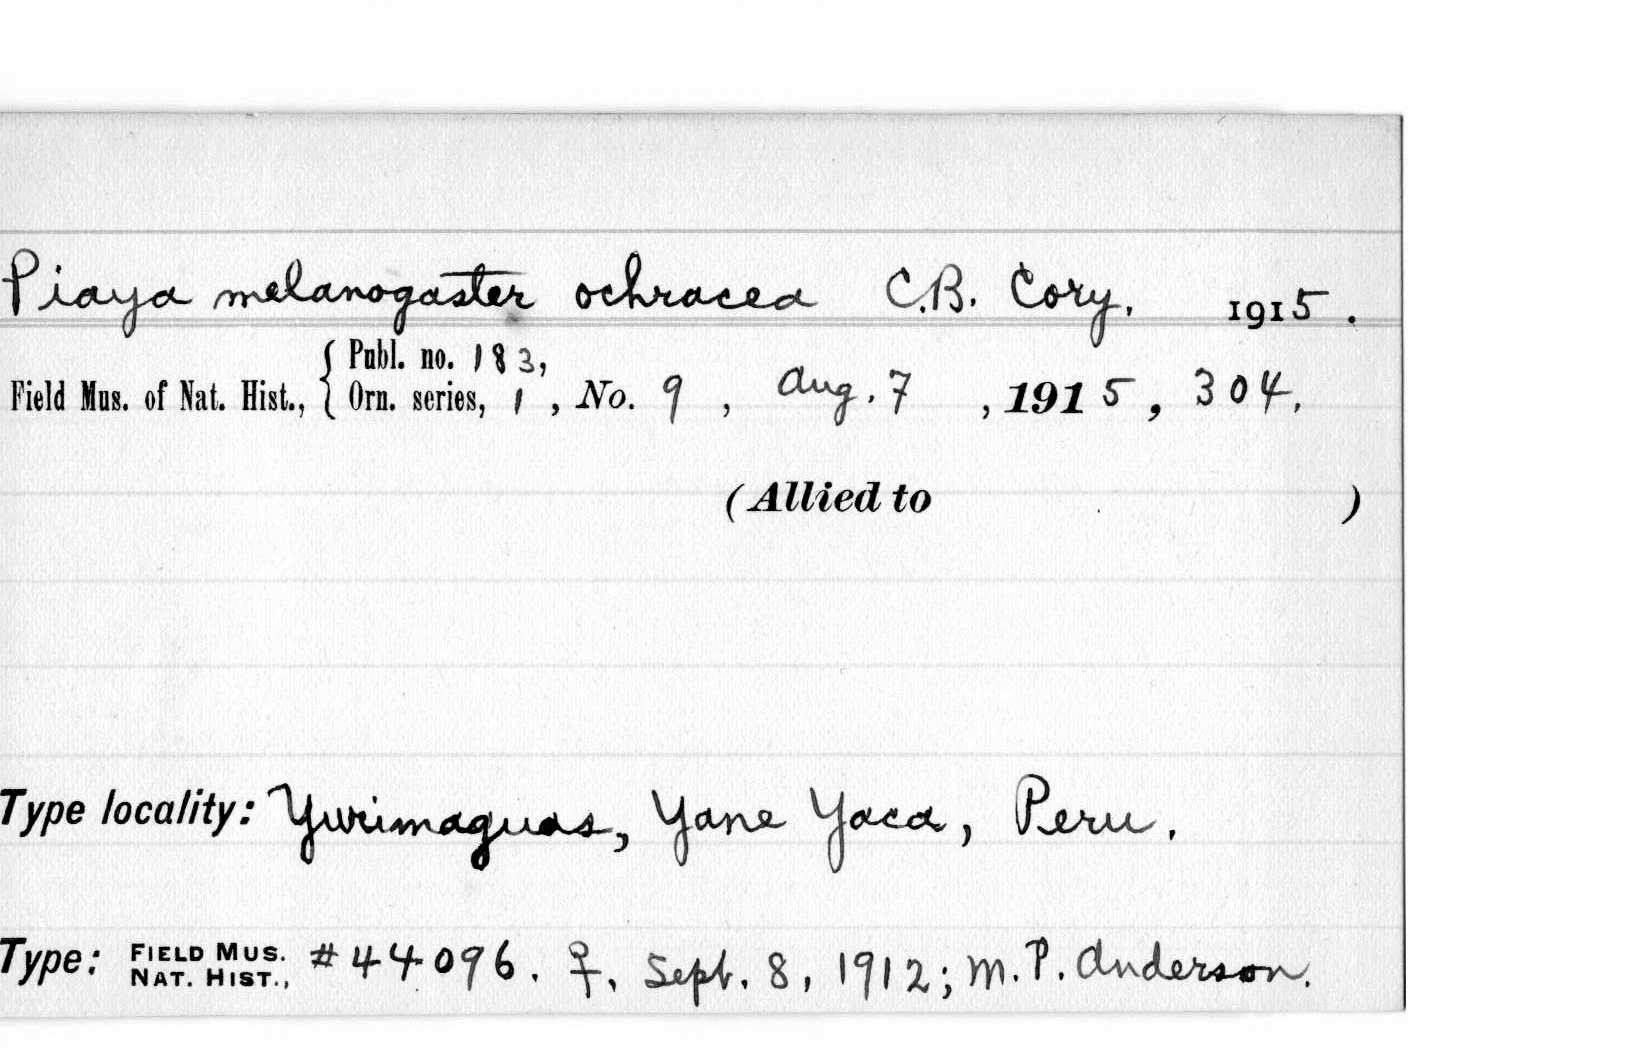 Piaya melanogaster ochracea C.B. Cory. 1915.
Publ. no. 183,
Field Mus. of Nat. Hist., Orn. series, 1, No. 9, Aug. 7, 1915, 304.
(Allied to )
Type locality: Yurimaguas, Yane Yaca, Peru.
Type: FIELD MUS. NAT. HIST., #44096. ♀. Sept. 8, 1912; M.P. Anderson.